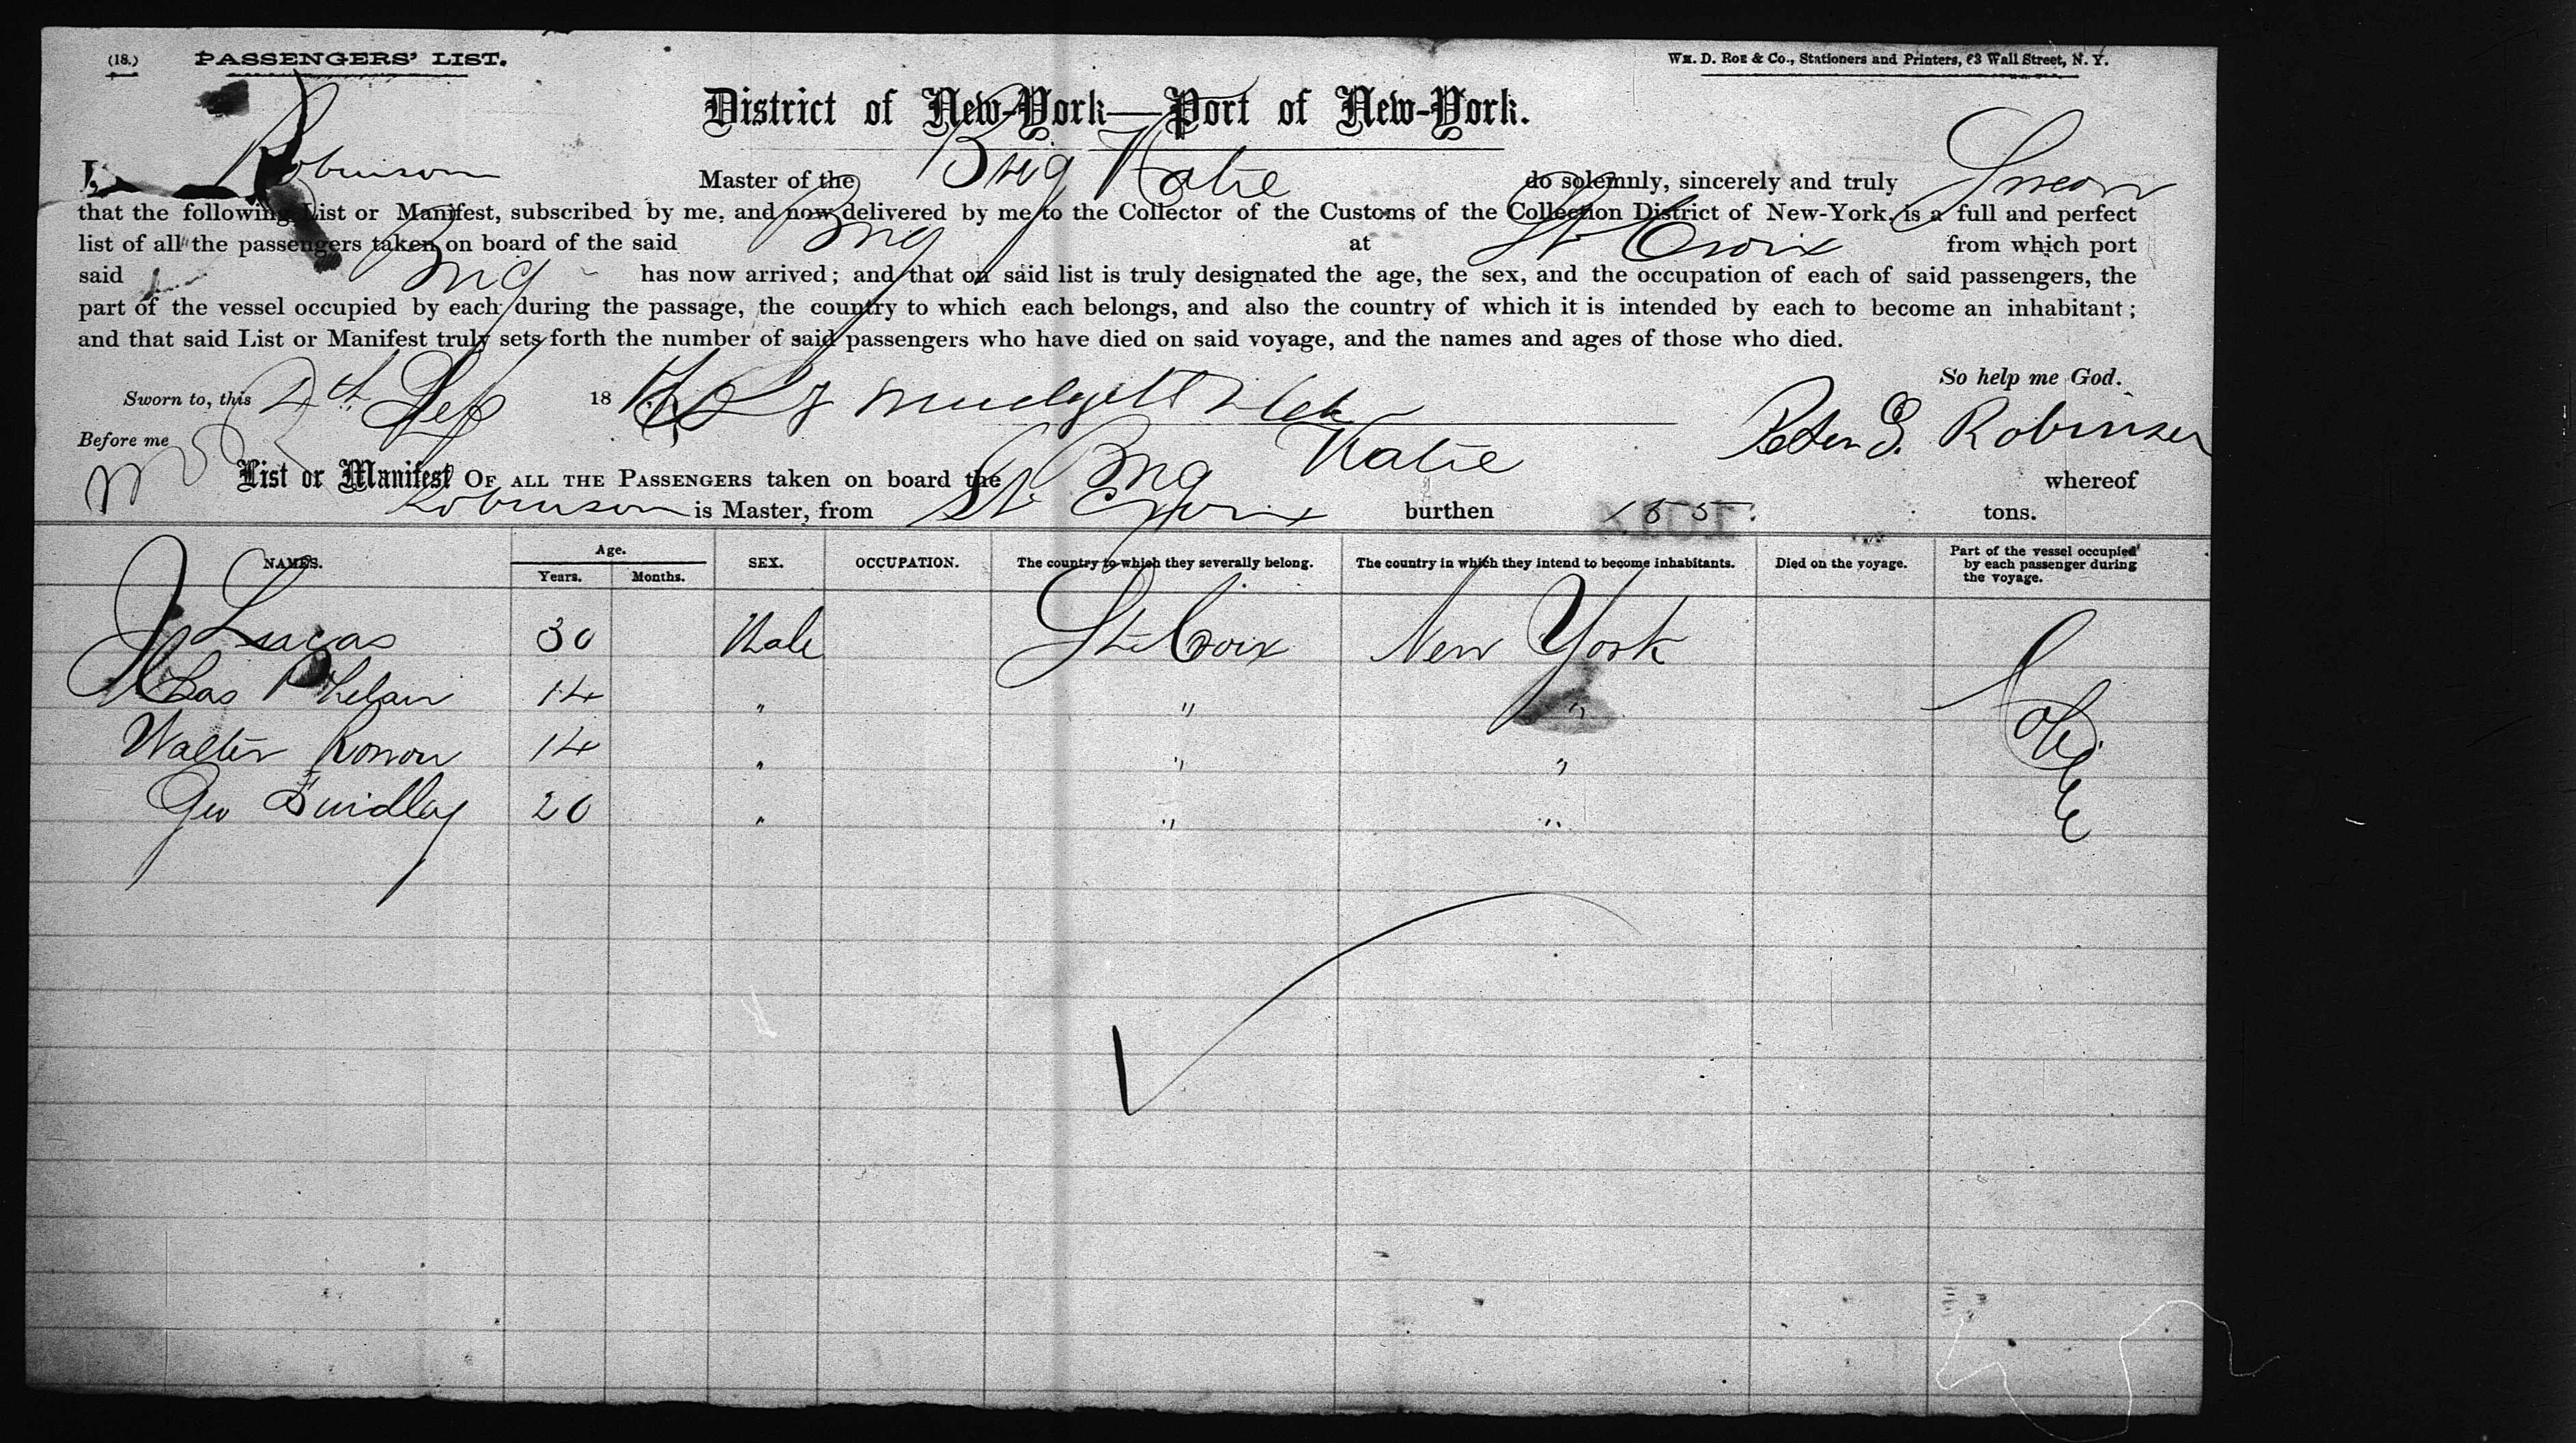 (18.) PASSENGERS' LIST. WM. D. ROE & Co., Stationers and Printers, 63 Wall Street, N. Y.
District of New-York—Port of New-York.
I, Robinson Master of the Brig Katie do solemnly, sincerely and truly Swear
that the following List or Manifest, subscribed by me, and now delivered by me to the Collector of the Customs of the Collection District of New-York, is a full and perfect
list of all the passengers taken on board of the said Brig at St Croix from which port
said Brig has now arrived; and that on said list is truly designated the age, the sex, and the occupation of each of said passengers, the
part of the vessel occupied by each during the passage, the country to which each belongs, and also the country of which it is intended by each to become an inhabitant;
and that said List or Manifest truly sets forth the number of said passengers who have died on said voyage, and the names and ages of those who died.
So help me God.
Sworn to, this Sep 18
Peter Robinson
Before me
List or Manifest OF ALL THE PASSENGERS taken on board the Brig Katie whereof
Robinson is Master, from St Croix burthen tons.
NAMES. Age. Years. Months. SEX. OCCUPATION. The country to which they severally belong. The country in which they intend to become inhabitants. Died on the voyage. Part of the vessel occupied by each passenger during the voyage.
J Lucas 30 Male St Croix New York
Phelan 14 " " "
Walter 14 " " "
Geo Findlay 20 " " "